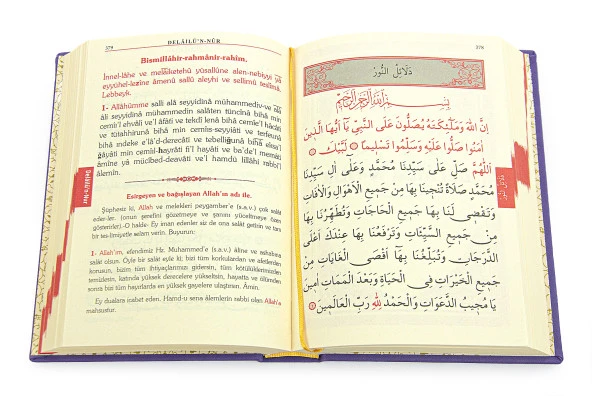 378
DELÂİLÜ'N-NÛR
Bismillâhir-rahmânir-rahîm.
İnnel-lâhe ve melâiketehû yüsallûne alen-nebiyyi yâ
eyyühel-lezîne âmenû sallû aleyhi ve sellimû teslîmâ.
Lebbeyk.
1- Allâhümme salli alâ seyyidinâ muhammediv-ve alâ
âli seyyidinâ muhammedin salâten tüncînâ bihâ min
cemîı'l ehvâli ve'l âfâti ve tekdî lenâ bihâ cemîa'l hâcâti
ve tütahhirunâ bihâ min cemîıs-seyyiâti ve terfeunâ
bihâ ındeke e'lâ'd-derecâti ve tebelliğunâ bihâ eksa'l
ğâyâti min cemîı'l-hayrâti fi'l hayâti ve ba'de'l memâti
âmîne yâ mücîbed-deavâti ve'l hamdü lillâhi rabbi'l
âlemîn.
Esirgeyen ve bağışlayan Allah'ın adı ile.
Şüphesiz ki, Allah ve melekleri peygamber'e (s.a.v.) çok salât
eder-ler. (onun şerefini gözetmeye ve şanını yüceltmeye özen
gösterirler) -O halde- Ey iman edenler siz de ona salât getirin ve tam
bir tes-limiyetle selam verin. Buyurun:
1- Allah'ım, efendimiz Hz. Muhammed'e (s.a.v.) âline ve ashabına
salât olsun. Öyle bir salât eyle ki; bizi tüm korkulardan ve afetlerden
korusun, bizim tüm ihtiyaçlarımızı gidersin, tüm kötülüklerimizden
temizlesin, katında yüksek derecelere yükseltsin, hayatta ve ölümden
sonra bizi tüm hayırlarda en yüksek gayelere ulaştırsın. Âmin.
Ey dualara icabet eden. Hamd-ü sena âlemlerin rabbi olan Allah'a
mahsustur.
Delâilü'n-Nûr
378
دَلَائِلُ النُّورِ
بِسْمِ اللهِ الرَّحْمٰنِ الرَّحِيمِ
اِنَّ اللهَ وَمَلٰٓئِكَتَهُ يُصَلُّونَ عَلَى النَّبِيِّ يَٓا اَيُّهَا الَّذِينَ
اٰمَنُوا صَلُّوا عَلَيْهِ وَسَلِّمُوا تَسْلِيمًا لَبَّيْكَ
اَللّٰهُمَّ صَلِّ عَلٰى سَيِّدِنَا مُحَمَّدٍ وَعَلٰى اٰلِ سَيِّدِنَا
مُحَمَّدٍ صَلَاةً تُنْجِينَا بِهَا مِنْ جَمِيعِ الْاَهْوَالِ وَالْاٰفَاتِ
وَتَقْضِى لَنَا بِهَا جَمِيعَ الْحَاجَاتِ وَتُطَهِّرُنَا بِهَا
مِنْ جَمِيعِ السَّيِّئَاتِ وَتَرْفَعُنَا بِهَا عِنْدَكَ اَعْلَى
الدَّرَجَاتِ وَتُبَلِّغُنَا بِهَٓا اَقْصَى الْغَايَاتِ مِنْ
جَمِيعِ الْخَيْرَاتِ فِى الْحَيَاةِ وَبَعْدَ الْمَمَاتِ اٰمِينَ
يَا مُجِيبَ الدَّعَوَاتِ وَالْحَمْدُ لِلّٰهِ رَبِّ الْعَالَمِينَ
دَلَائِلُ النُّورِ